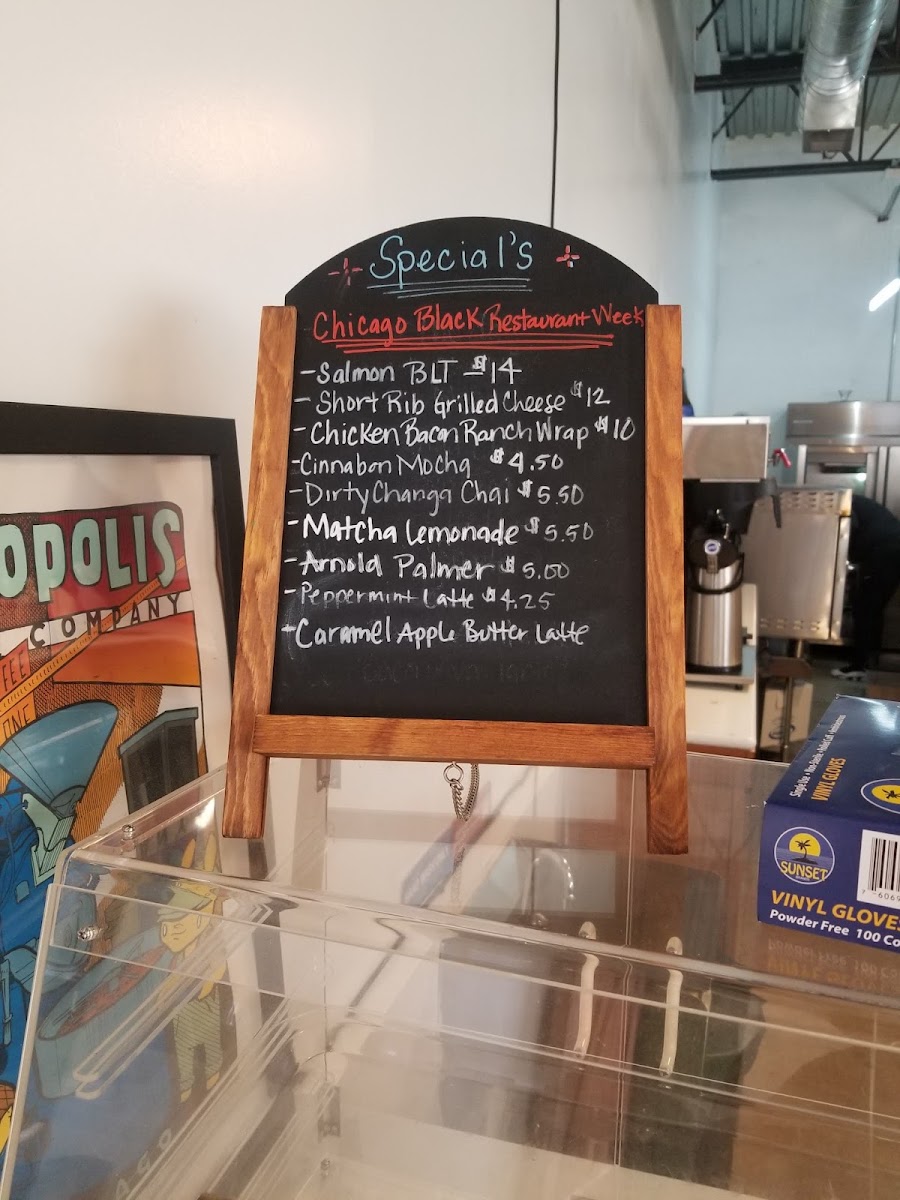 Special's
Chicago Black Restaurant Week
- Salmon BLT - $14
- Short Rib Grilled Cheese $12
- Chicken Bacon Ranch Wrap $10
- Cinnabon Mocha $4.50
- Dirty Changa Chai $5.50
- Matcha Lemonade $5.50
- Arnold Palmer $5.00
- Peppermint Latte $4.25
- Caramel Apple Butter Latte
OPOLIS
COMPANY
FEE
ONE
VINYL GLOVES
SUNSET
VINYL GLOVES
Powder Free 100 Co